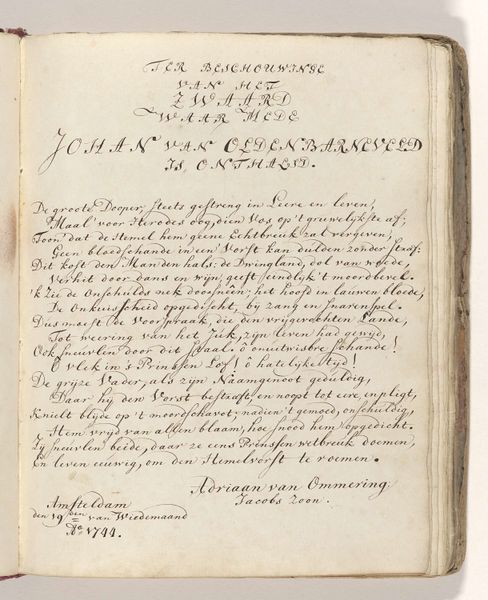 TER BESCHOUWINGE
VAN HET
ZWAARD
WAAR MEDE
JOHAN VAN OLDENBARNEVELD
IS ONTHALSD.
De groote Dooper, steets gestreng in Leere en leven,
Maal' voor Herodes oog, dien Vos op 't gruwelykste af;
Toon' dat de Hemel hem geene Echtbreuk zal vergeven,
Geen bloedschande in een Vorst kan dulden zonder straf:
Dit kost den Man den hals, de Dwingland, dol van woede,
Verhit door dans en wyn, geeft eindlyk 't moordbevel.
'k Zie de Onschulds nek doorsneên; het hoofd in lauwen bloede,
De Onkuisheid opgedischt, by zang en snarenspel.
Dus moest de Voorspraak, die den vrygevochten Lande,
Tot weering van het Juk, zyn leven had gewyd,
Ook sneuvlen door dit staal. ô onuitwisbre schande!
O vlek in 's Prinssen Lof! ô hatelyke tyd!
De gryze Vader, als zyn Naamgenoot geduldig,
Daar hy den Vorst bestraft, en noopt tot eere, en pligt,
Knielt blyde op 't moordschavot; nadien 't gemoed, onschuldig,
Hem vryd van allen blaam, hoe snood hem opgedicht.
Zy sneuvlen beide, daar ze eens Prinssen wetbreuk doemen,
En leven eeuwig, om den Hemelvorst te roemen.
Adriaan van Ommering
Jacobs Zoon.
Amsteldam
den 19den van Wiedemaand
Ao 1744.